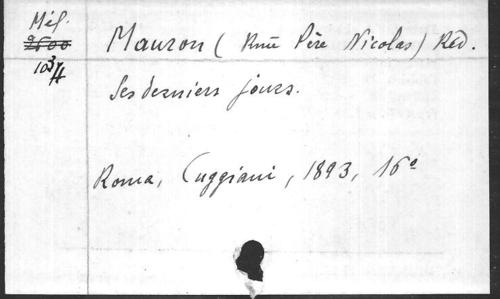 Mél.
Mauron (Rme Père Nicolas) Réd.
Ses derniers jours.
Roma, Cuggiani, 1893, 16°